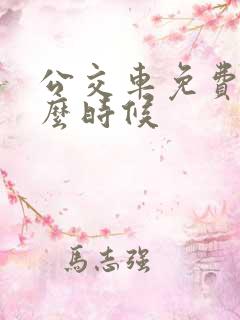 公交車免費
麼時候
馬志強